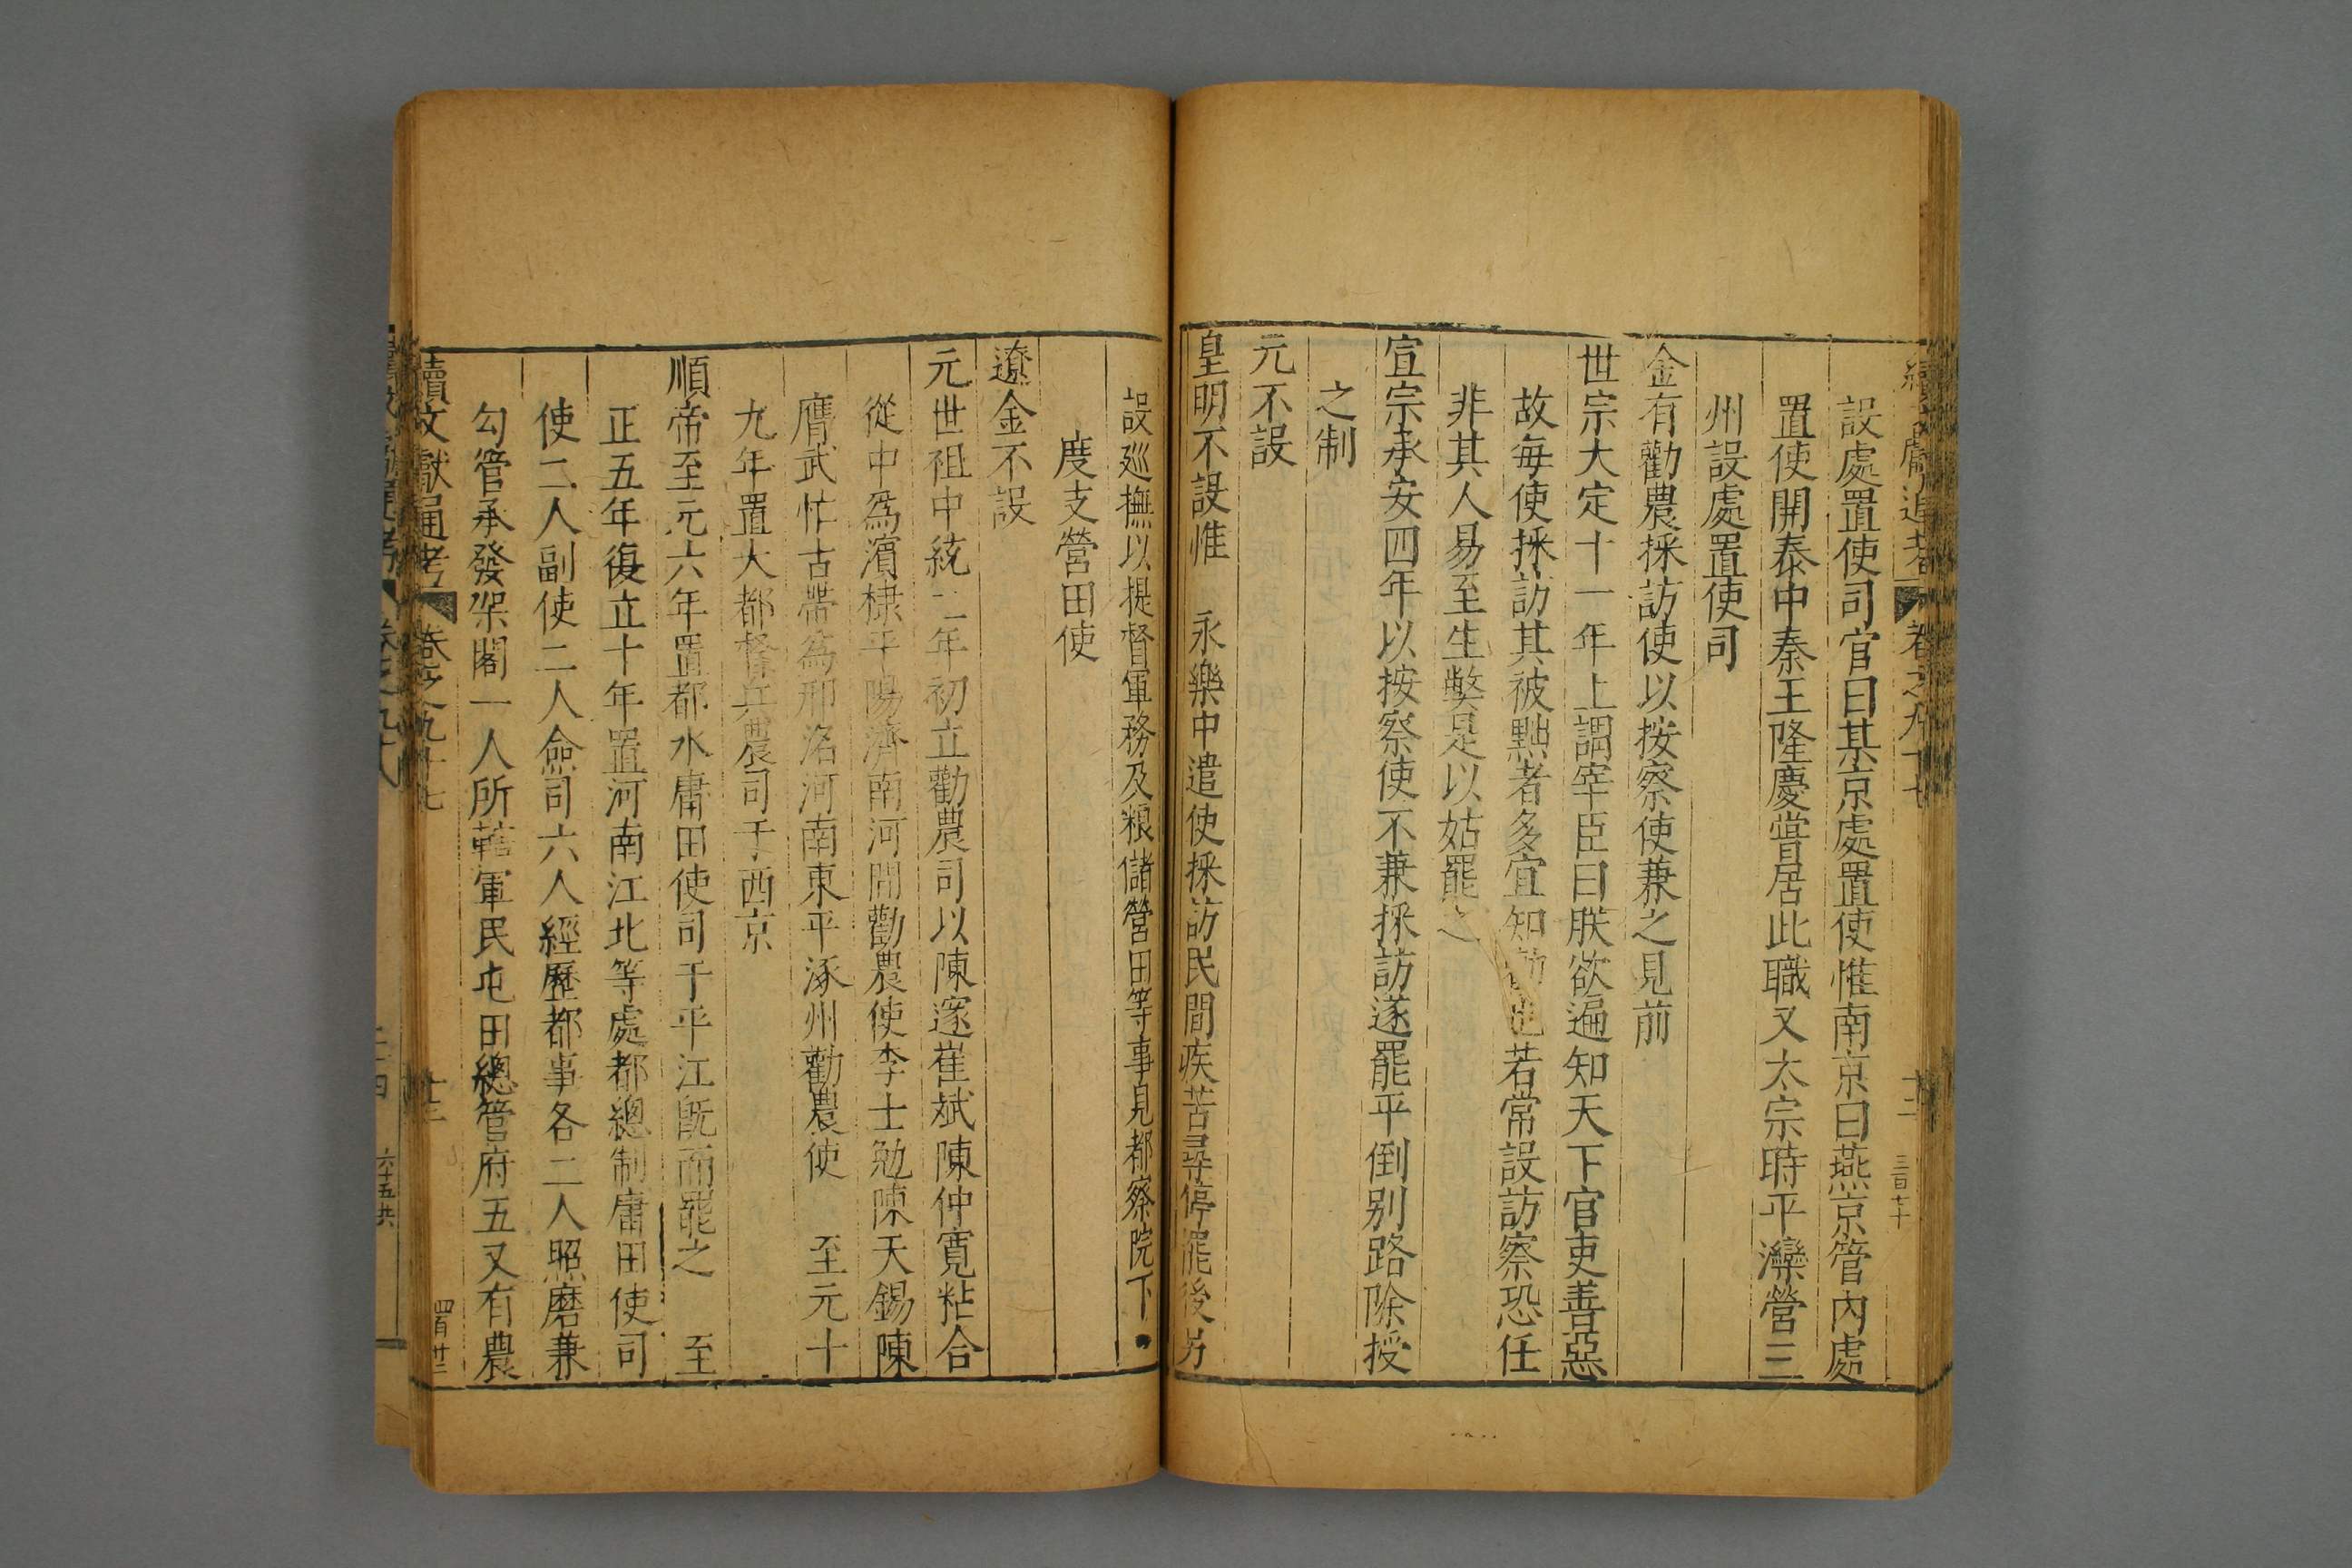 設處置使司官曰某京處置使惟南京曰燕京管內處
置使開泰中秦王隆慶嘗居此職又太宗時平灤營三
州設處置使司
金有勸農採訪使以按察使兼之見前
世宗大定十一年上謂宰臣曰朕欲遍知天下官吏善惡
故每使採訪其被黜者多宜知勸也若常設訪察恐任
非其人易至生弊是以姑罷之
宣宗承安四年以按察使不兼採訪遂罷平倒别路除授
之制
元不設
皇明不設惟 永樂中遣使採訪民間疾苦尋停罷後另
設巡撫以提督軍務及粮儲營田等事見都察院下
度支營田使
遼金不設
元世祖中統二年初立勸農司以陳邃崔斌陳仲寬粘合
從中為濱棣平陽濟南河間勸農使李士勉陳天錫陳
膺武忙古帶為邢洺河南東平涿州勸農使 至元十
九年置大都督兵農司于西京
順帝至元六年置都水庸田使司于平江旣而罷之 至
正五年復立十年置河南江北等處都總制庸田使司
使二人副使二人僉司六人經歷都事各二人照磨兼
勾管承發架閣一人所轄軍民屯田總管府五又有農
續文獻通考 卷之九十七 十三